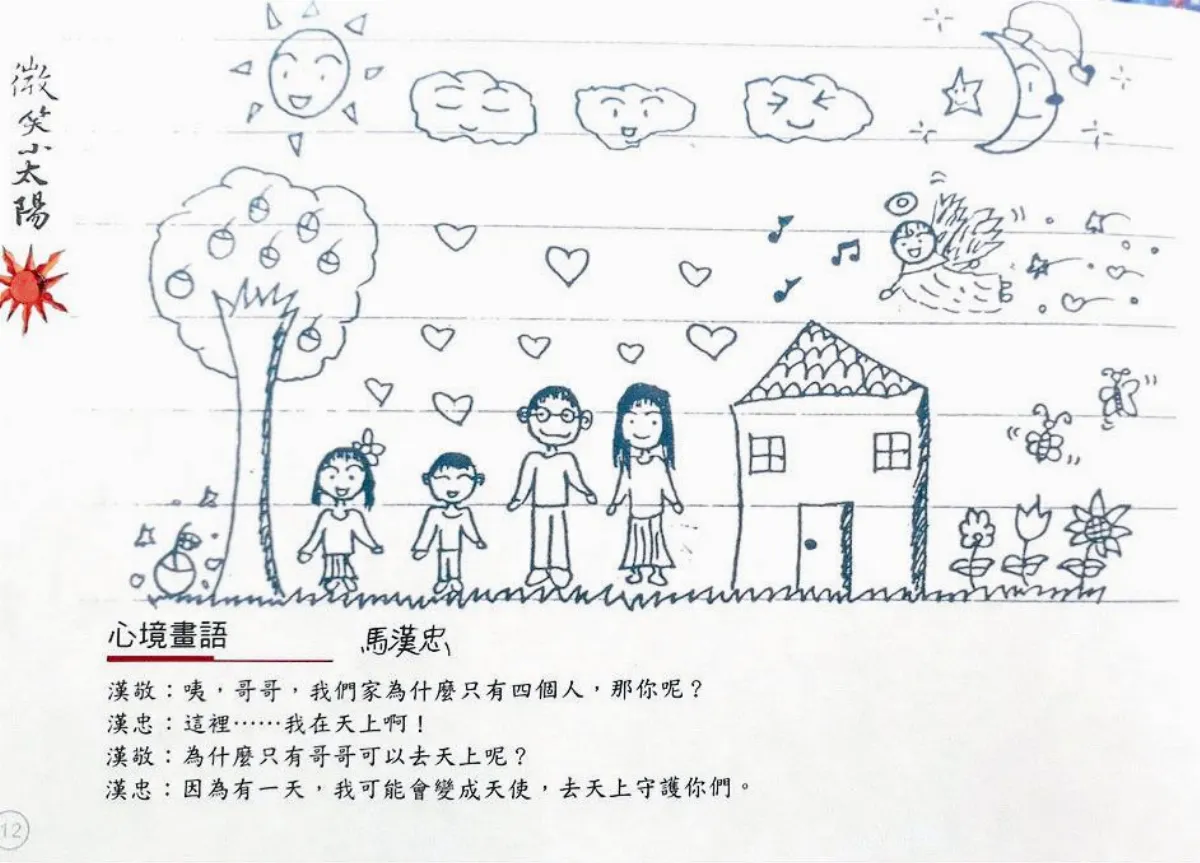 微笑小太陽
心境畫語 馬漢忠
漢敬：咦，哥哥，我們家為什麼只有四個人，那你呢？
漢忠：這裡⋯⋯我在天上啊！
漢敬：為什麼只有哥哥可以去天上呢？
漢忠：因為有一天，我可能會變成天使，去天上守護你們。
12